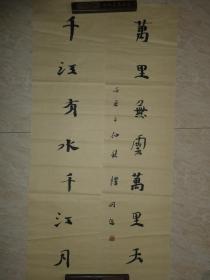 萬里無雲萬里天
千江有水千江月